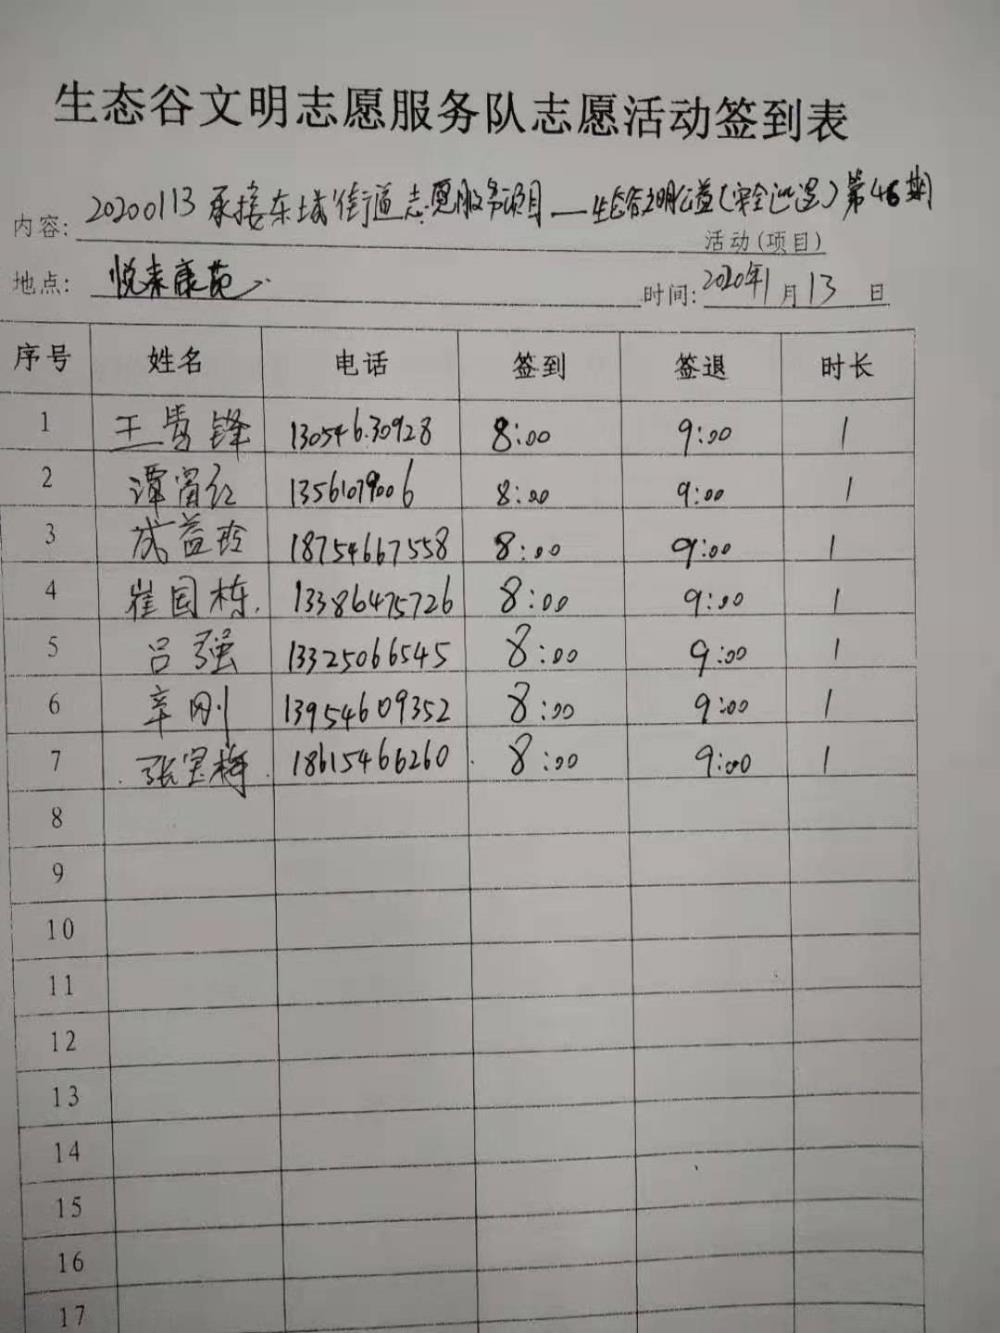 生态谷文明志愿服务队志愿活动签到表
内容: 20200113承接东城街道志愿服务项目—生态谷文明公益(安全巡逻)第46期
活动(项目)
地点: 悦来康苑 时间: 2020年1月13日
序号 姓名 电话 签到 签退 时长
1 王秀锋 13054630928 8:00 9:00 1
2 谭红 13561079006 8:00 9:00 1
3 成益玲 18754667558 8:00 9:00 1
4 崔国栋 13386475726 8:00 9:00 1
5 吕强 13325066545 8:00 9:00 1
6 辛刚 13954609352 8:00 9:00 1
7 张宝梅 18615466260 8:00 9:00 1
8
9
10
11
12
13
14
15
16
17